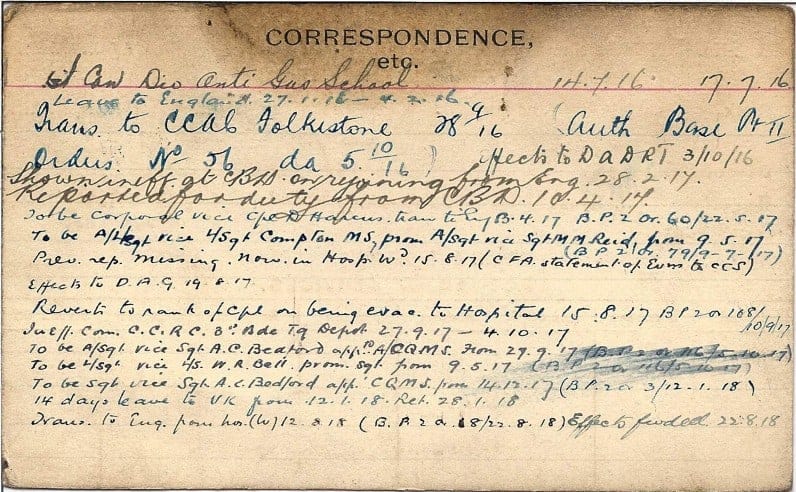 CORRESPONDENCE,
etc.
Can Div Anti Gas School 14.7.16 17.7.16
Leave to England. 27.1.16 – 4.2.16
Trans. to CCAC Folkestone 28 9/16 (Auth Base Pt II
Orders No 56 da 5 10/16) Effects to DADRT 3/10/16
Shown in eff at CBD on rejoining from Eng. 28.2.17.
Reported for duty from CBD. 10.4.17.
To be Corporal vice Cpl D Harcus. tran to Eng 8.4.17 B.P.2 Or. 60/22.5.17
To be A/L/Sgt vice L/Sgt Compton MS, prom A/Sgt vice Sgt MM Reid from 9.5.17
(B.P.2 Or. 79/9-7-17)
Prev. rep. missing. Now. in Hosp. Wd. 15.8.17 (CFA. statement of Evac to CCS)
Effects to D.A.G. 19.8.17.
Reverts to rank of Cpl on being evac. to Hospital 15.8.17 BP2 or 108/
10/9/17
Ineff. Com. C.C.R.C. 3d. Bde Tg Depot 27.9.17 – 4.10.17
To be A/Sgt vice Sgt A.C. Bedford app. A/CQMS. from 27.9.17
To be L/Sgt vice L/S. W.R. Bell prom. Sgt from 9.5.17
To be Sgt vice Sgt A.C. Bedford app. CQMS. from 14.12.17 (B.P.2 or 3/12.1.18)
14 days leave to UK from 12.1.18. Ret. 28.1.18
Trans. to Eng. from hos. (W) 12.8.18 (B.P.2 o. 68/22.8.18) Effects fwded. 22.8.18